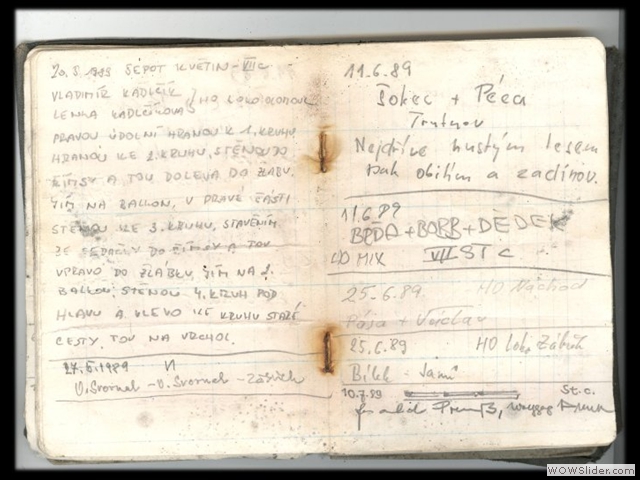 20.5.1989 ŠEPOT KVĚTIN - VIIc
VLADIMÍR KADLČÍK
LENKA KADLČÍKOVÁ } HO LOKO OLOMOUC
PRAVOU ÚDOLNÍ HRANOU K 1. KRUHU
HRANOU KE 2. KRUHU, STĚNOU DO
ŘÍMSY A TOU DOLEVA DO ŽLABU.
JÍM NA BALKON, V PRAVÉ ČÁSTI
STĚNOU KE 3. KRUHU, STAVĚNÍM
ZE SEDAČKY DO ŘÍMSY A TOU
VPRAVO DO ŽLÁBKU, JÍM NA
BALKON, STĚNOU 4. KRUH POD
HLAVU A VLEVO KE KRUHU STARÉ
CESTY. TOU NA VRCHOL.
17.6.1989
11.6.89
Šokec + Péca
Trutnov
Nejdříve hustým lesem
pak obilím a zadinou.
11.6.89
BÉĎA + BOBB + DĚDEK
LO MIX VII ST C
25.6.89 HO Náchod
Pája + Václav
25.6.89 HO Loko Zábřeh
Bílek -
10.7.89 St. c.
WOWSlider.com